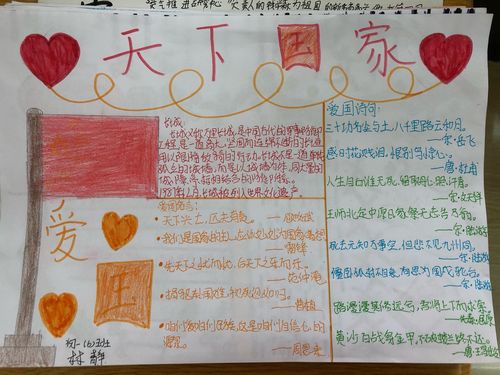 天下国家
长城:
长城又称万里长城,是中国古代的军事防御
工程,是一道高大、坚固而连绵不断的长垣,
用以限隔敌骑的行动。长城不是一道单纯
孤立的城墙,而是以城墙为主体,同大量的
城、障、亭、标相结合的防御体系。
1987年12月,长城被列入世界文化遗产。
爱国
爱国名言:
• 天下兴亡,匹夫有责。——顾炎武
• 先天下之忧而忧,后天下之乐而乐。
——范仲淹
• 捐躯赴国难,视死忽如归。
——曹植
——周恩来
初一(6)班
爱国诗句:
三十功名尘与土,八千里路云和月。
——宋·岳飞
感时花溅泪,恨别鸟惊心。
——唐·杜甫
人生自古谁无死,留取丹心照汗青。
——宋·文天祥
王师北定中原日,家祭无忘告乃翁。
——宋·陆游
死去元知万事空,但悲不见九州同。
——宋·陆游
僵卧孤村不自哀,尚思为国戍轮台。
——宋·陆游
路漫漫其修远兮,吾将上下而求索。
黄沙百战穿金甲,不破楼兰终不还。
——唐·王昌龄